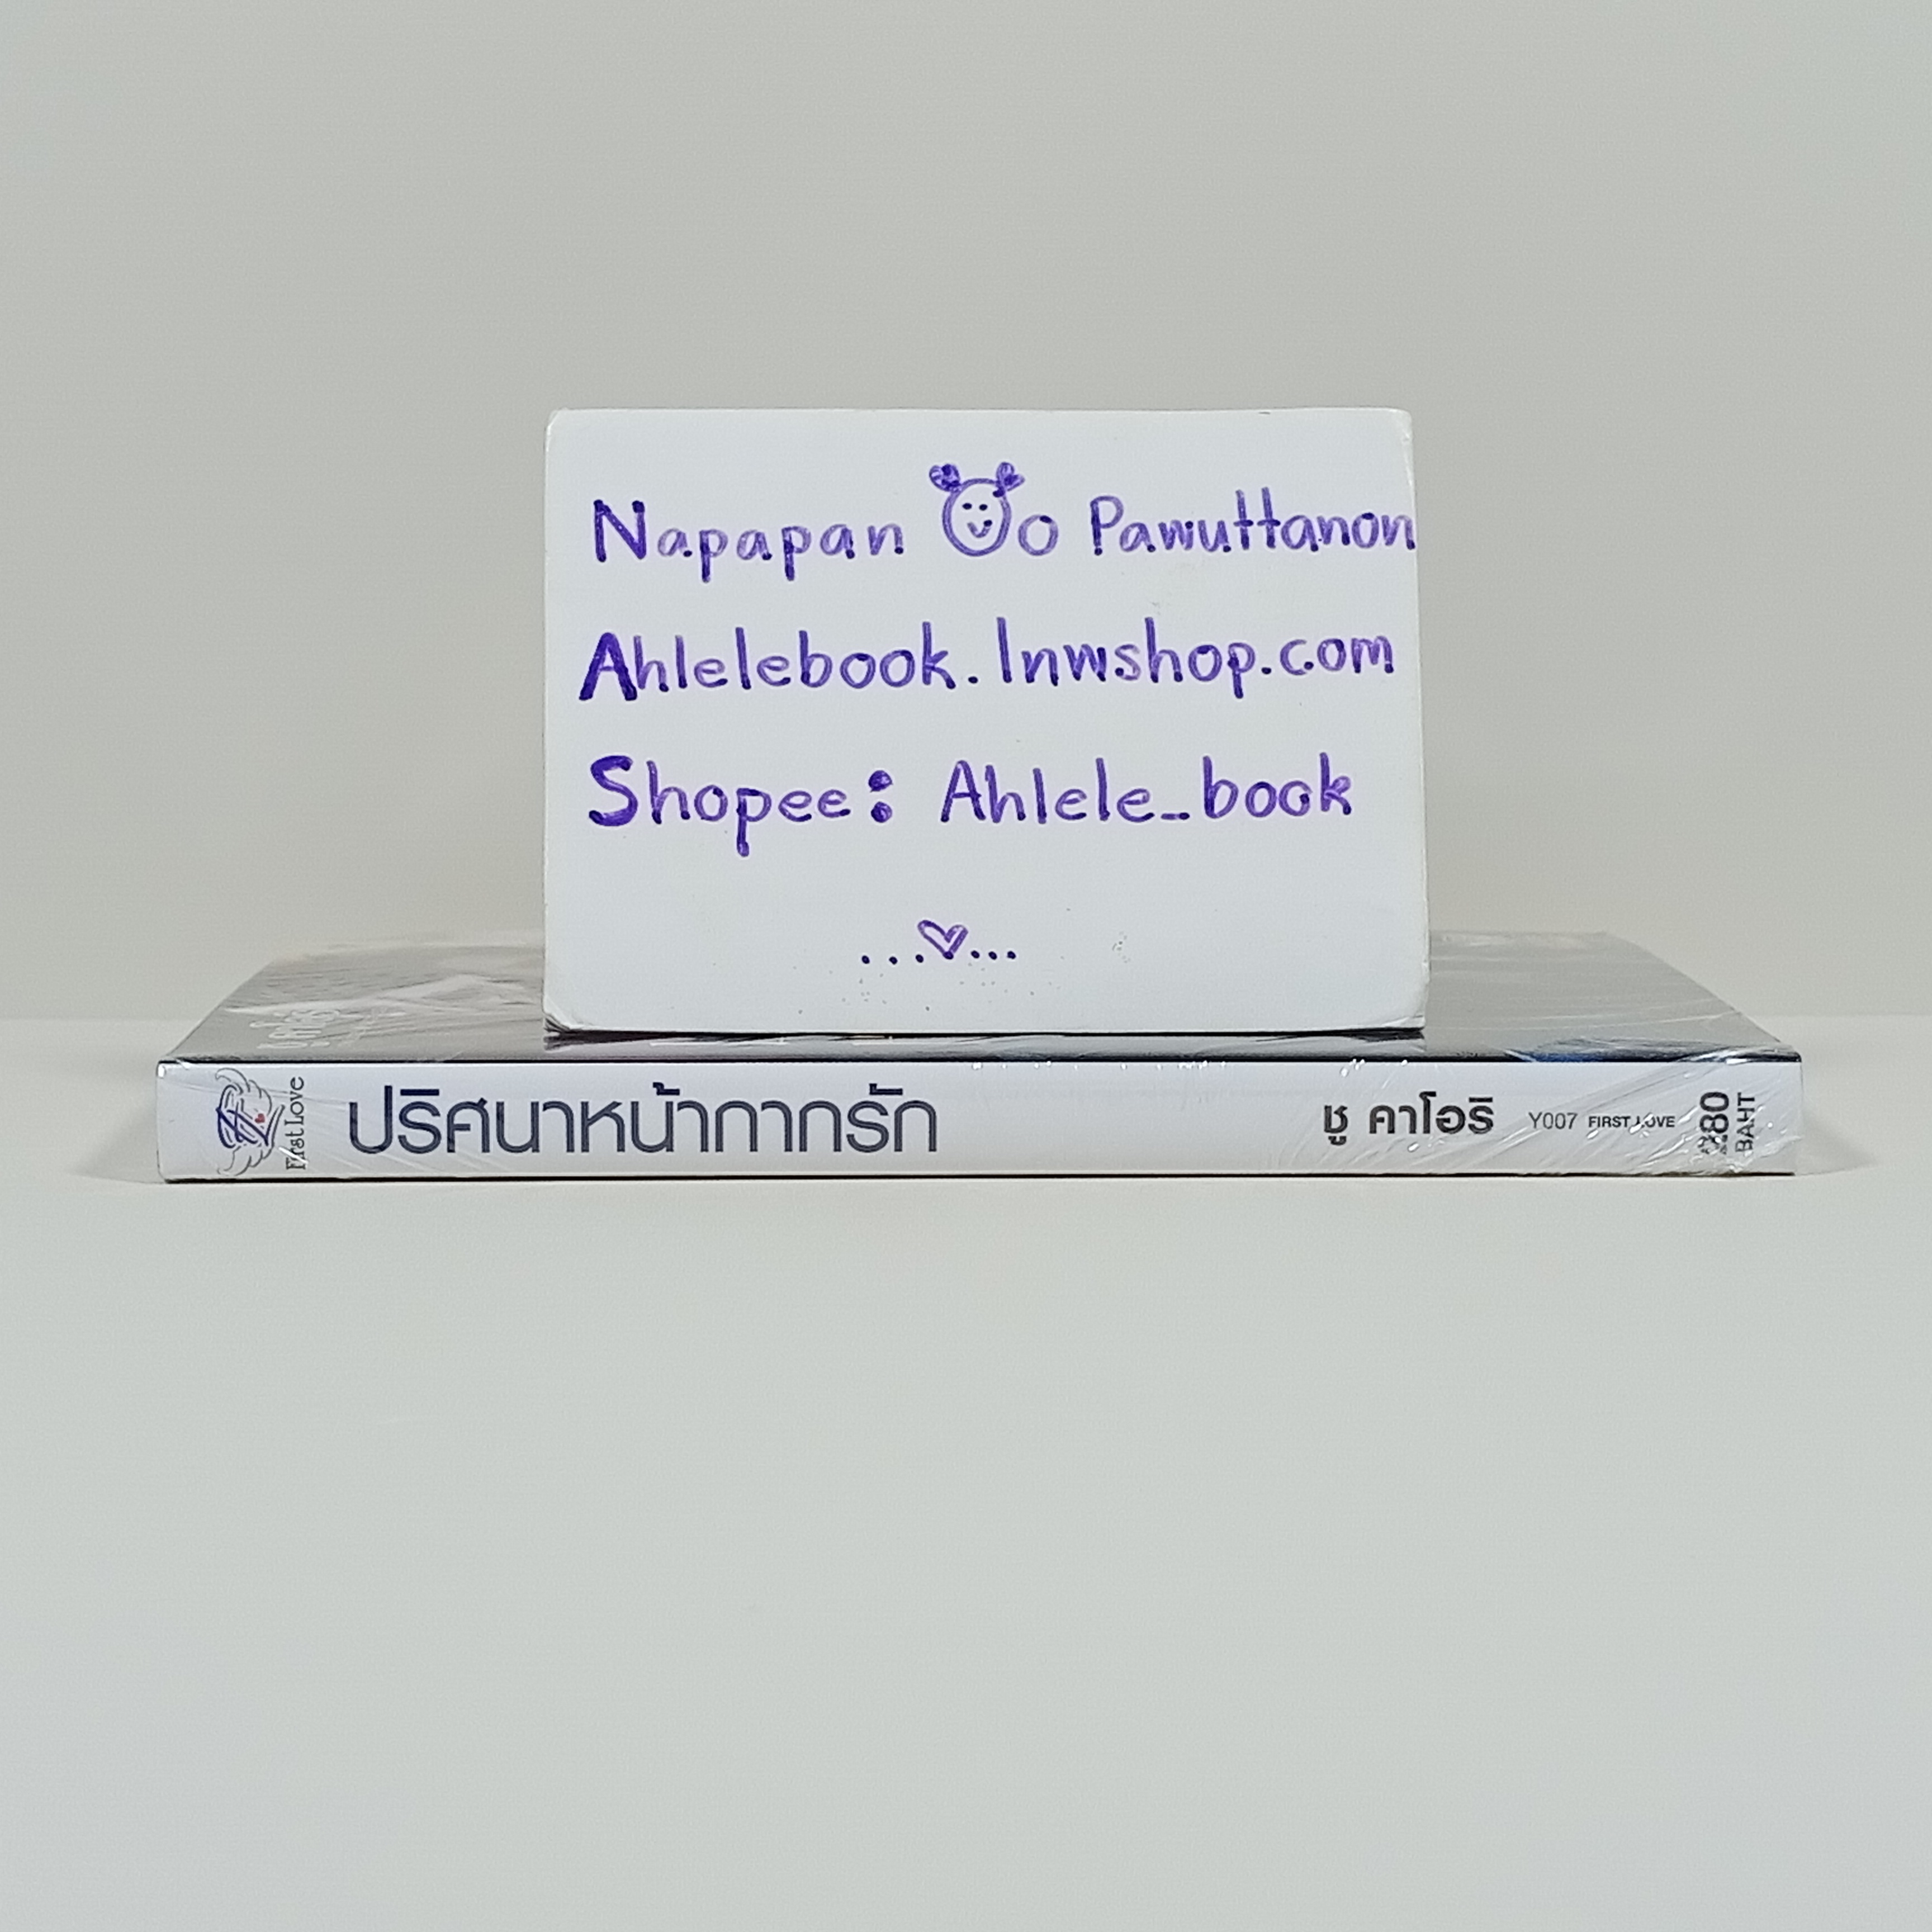 Napapan Oo Pawuttanon
Ahlelebook.lnwshop.com
Shopee: Ahlele_book
First Love
ปริศนาหน้ากากรัก
ชู คาโอริ
Y007 FIRST LOVE
280
BAHT